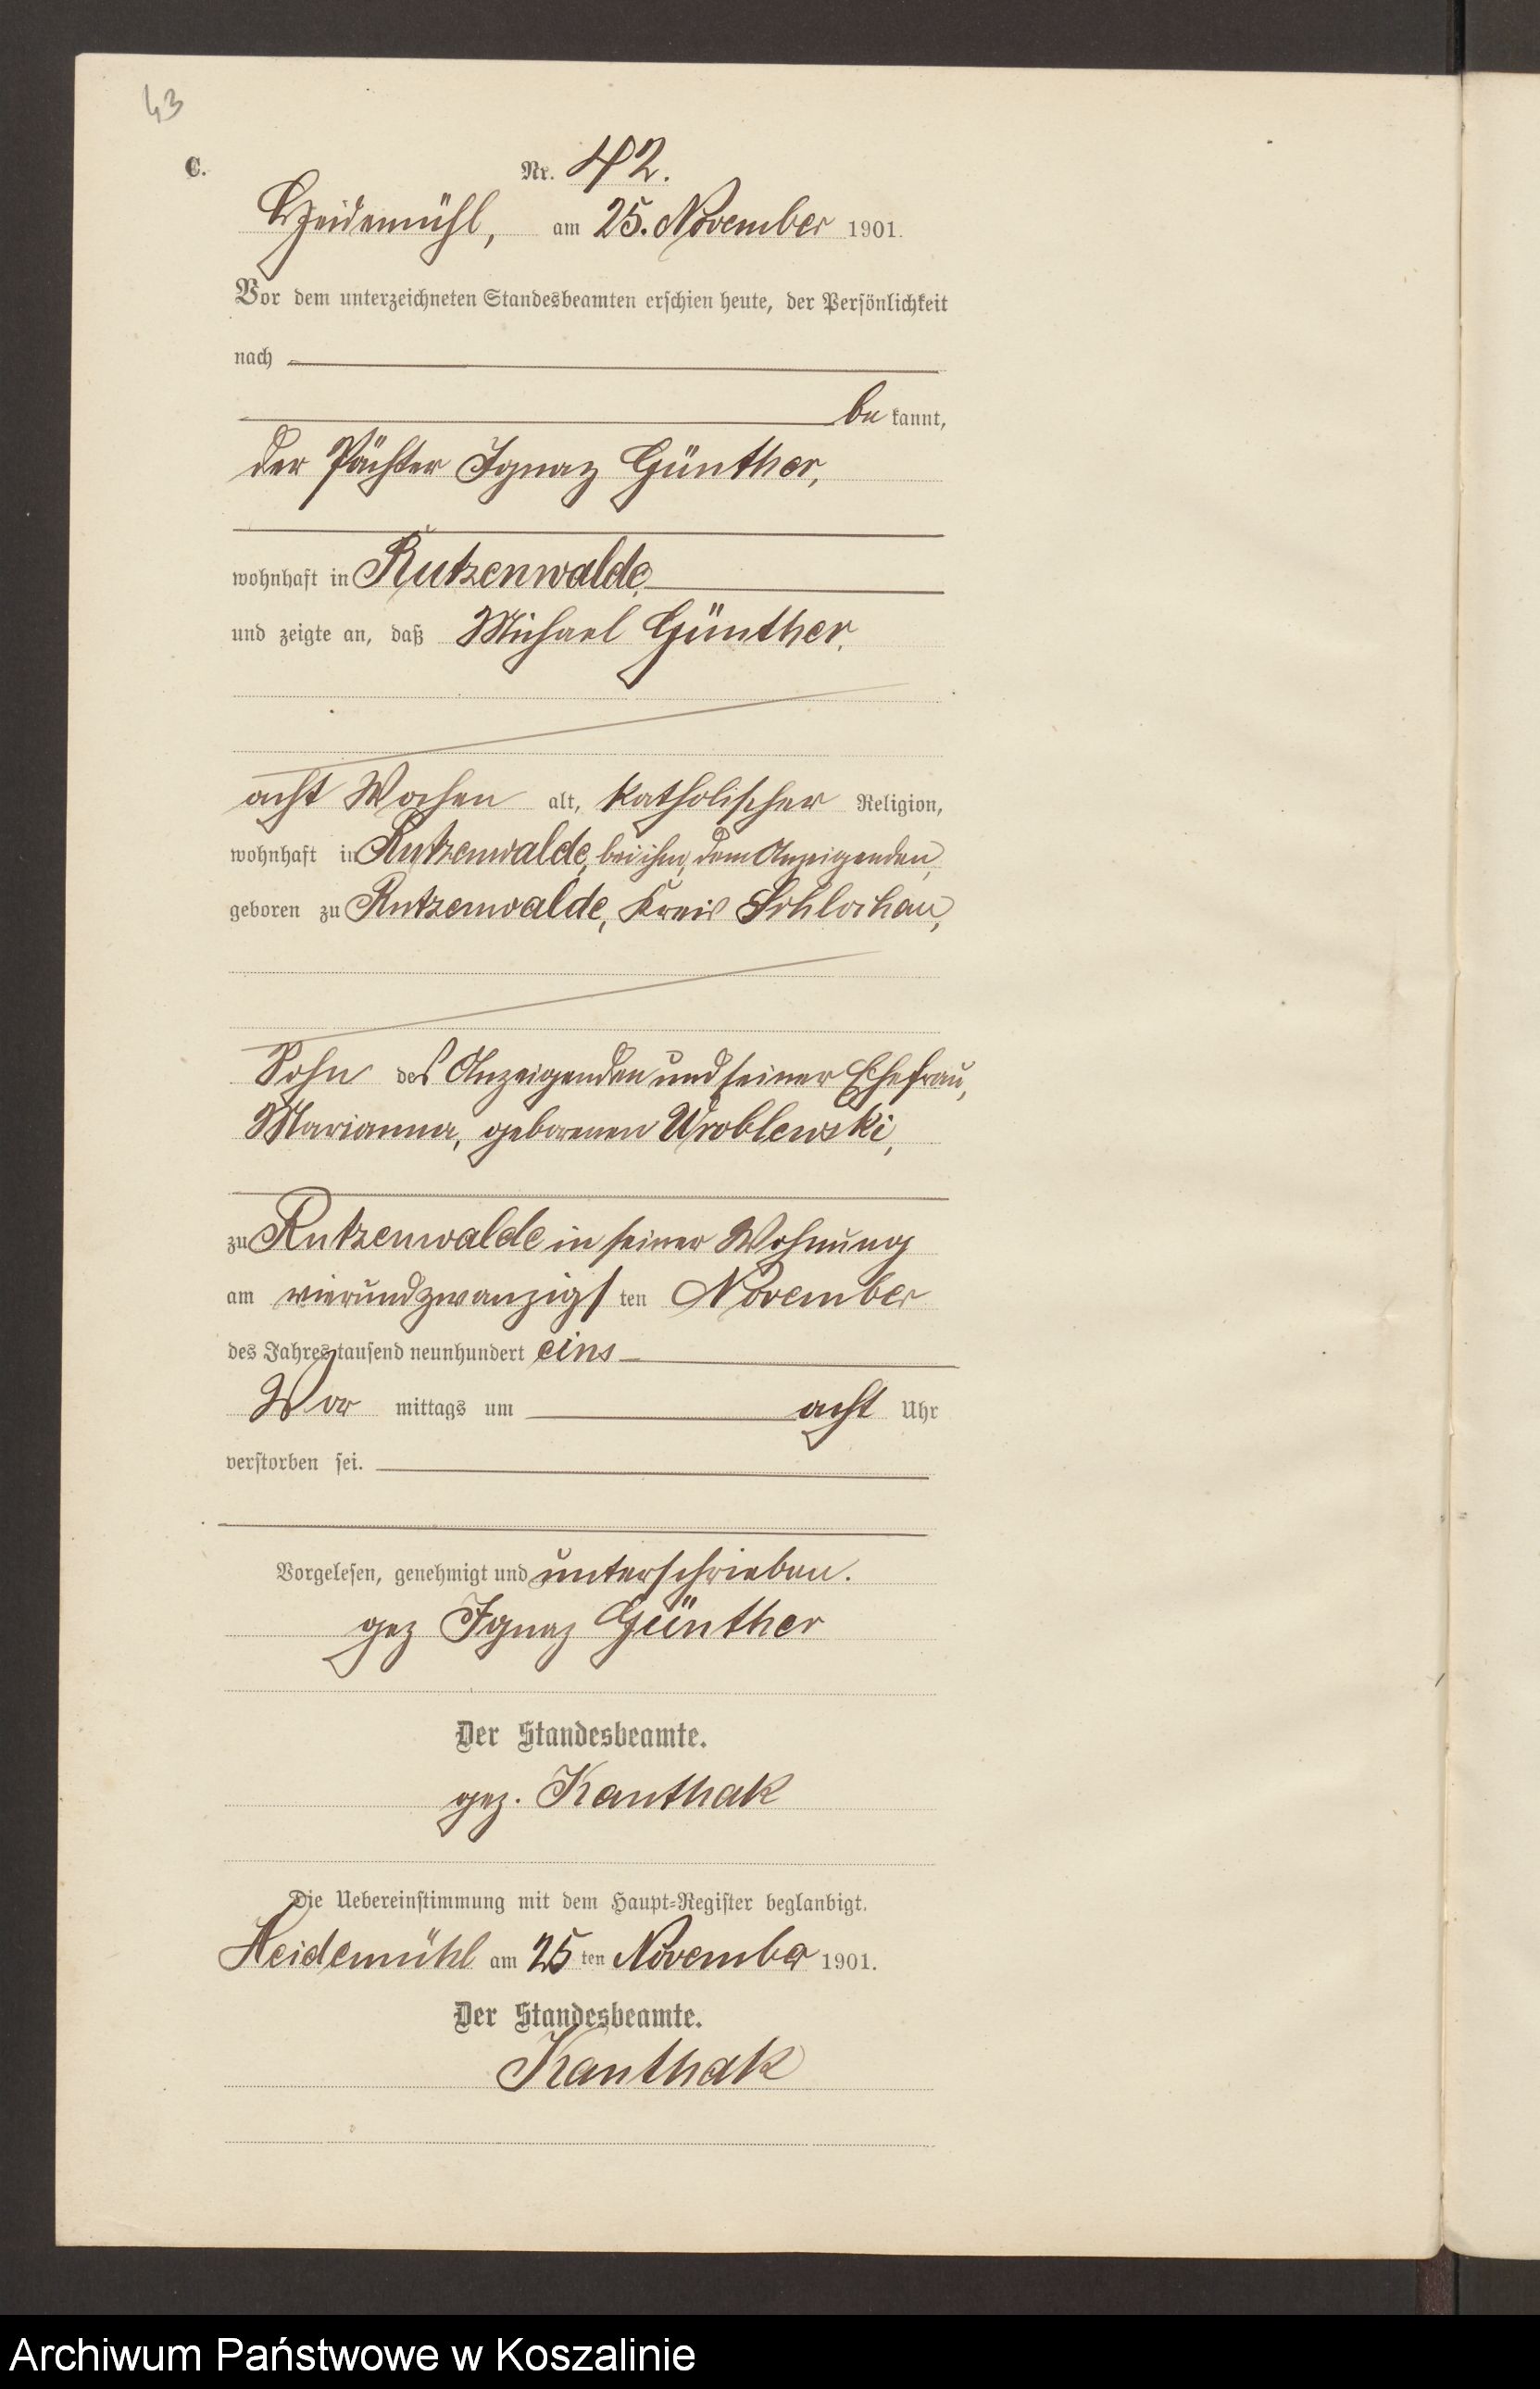 43
C.
Nr. 42.
Heidemühl, am 25. November 1901.
Vor dem unterzeichneten Standesbeamten erschien heute, der Persönlichkeit
nach
be kannt,
der Pächter Ignaz Günther,
wohnhaft in Rutzenwalde,
und zeigte an, daß Michael Günther,
acht Wochen alt, katholischer Religion,
wohnhaft in Rutzenwalde, bei ihm, dem Anzeigenden,
geboren zu Rutzenwalde, Kreis Schlochau,
Sohn des Anzeigenden und seiner Ehefrau,
Marianna, geborenen Wroblewski,
zu Rutzenwalde in seiner Wohnung
am vierundzwanzigsten November
des Jahres tausend neunhundert eins
Vor mittags um acht Uhr
verstorben sei.
Vorgelesen, genehmigt und unterschrieben.
gez Ignaz Günther
Der Standesbeamte.
gez. Kanthak
Die Uebereinstimmung mit dem Haupt-Register beglaubigt.
Heidemühl am 25 ten November 1901.
Der Standesbeamte.
Kanthak
Archiwum Państwowe w Koszalinie